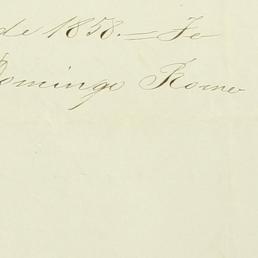 de 1858.= Fe
Domingo Rome